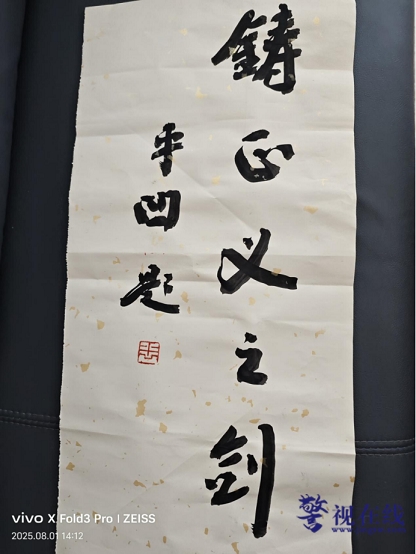 鑄正义之剑
平凹题
vivo X Fold3 Pro | ZEISS
2025.08.01 14:12
警视在线